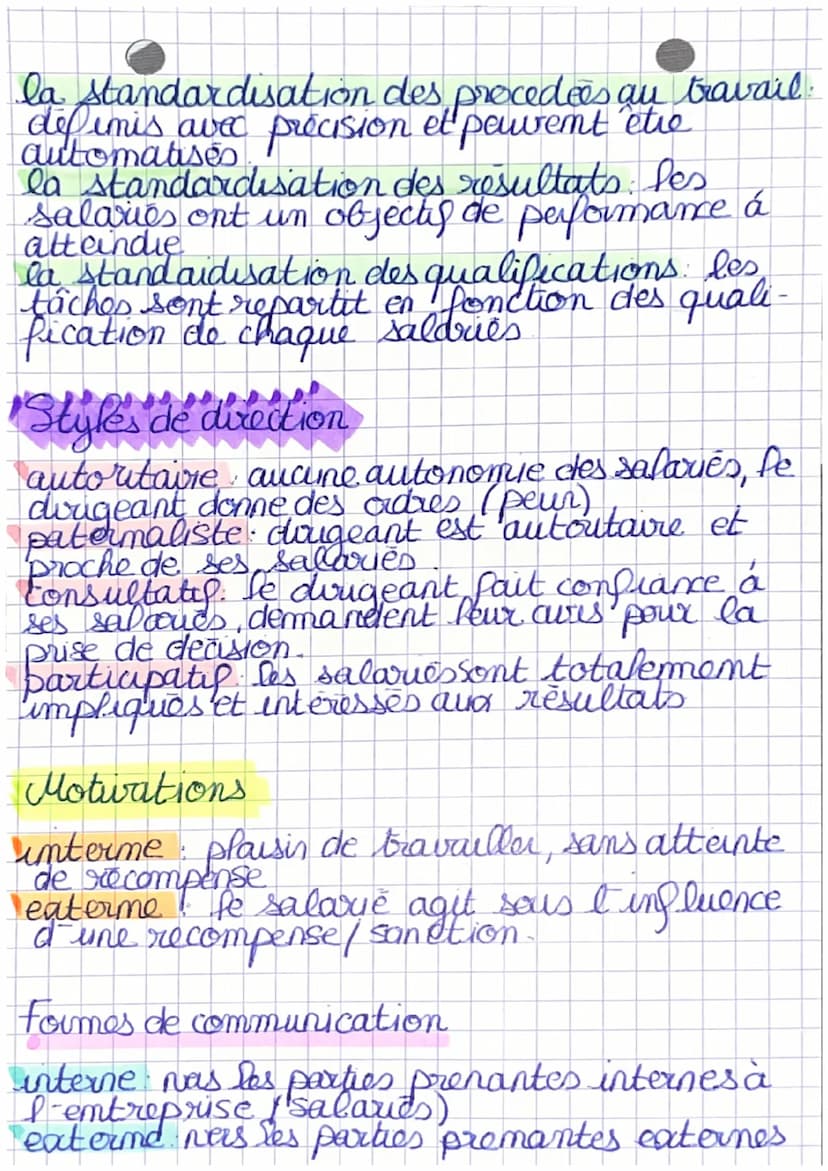 la standardisation des procedées au travail:
définis avec précision et peuvent être
automatisés.
la standardisation des résultats: les
salariés ont un objectif de performance á
atteindre
la standardisation des qualifications: les
tâches sont repartit en fonction des quali-
fication de chaque salariés
Styles de direction
autoritaire: aucune autonomie des salariés, le
dirigeant donne des ordres (peur)
paternaliste: dirigeant est autoritaire et
proche de ses salariés.
Consultatif: le dirigeant fait confiance á
ses salariés, demandent leur avis pour la
prise de décision.
participatif: les salariés sont totalement
impliqués et intéressés aux résultats
Motivations
interne: plaisir de travailler, sans atteinte
de récompense
externe: le salarié agit sous l'influence
d'une récompense/sanction.
formes de communication
interne: vers les parties prenantes internes à
l'entreprise (salariés)
externe: vers les parties prenantes externes